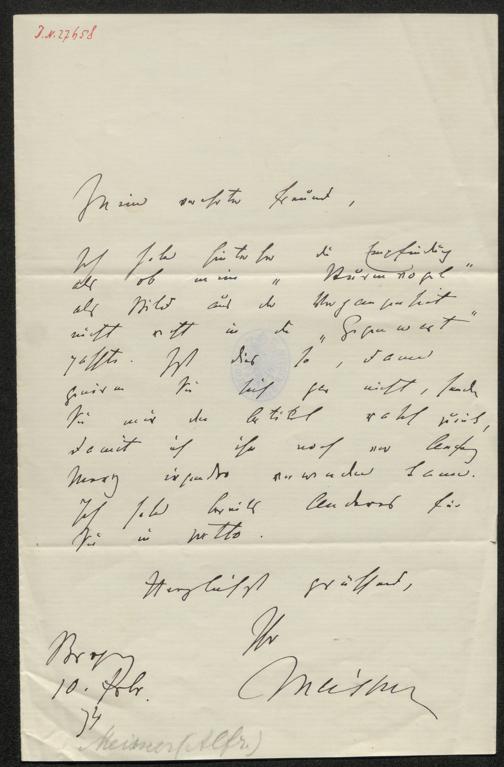 J.N. 27658
Mein verehrter Freund,
Ich habe hinterher die Empfindung
als ob mein „Sturmvogel“
als Bild aus der Vergangenheit
nicht recht in die „Gegenwart“
passte. Ist dies so, dann
geniren Sie sich gar nicht, senden
Sie mir den Artikel rasch zurück,
damit ich ihn noch vor Anfang
März irgendwo verwenden kann.
Ich habe bereits Anderes für
Sie in petto.
Herzlichst grüssend,
Ihr
Meissner
Bregenz
10. Febr.
74
Meissner (Alfr.)